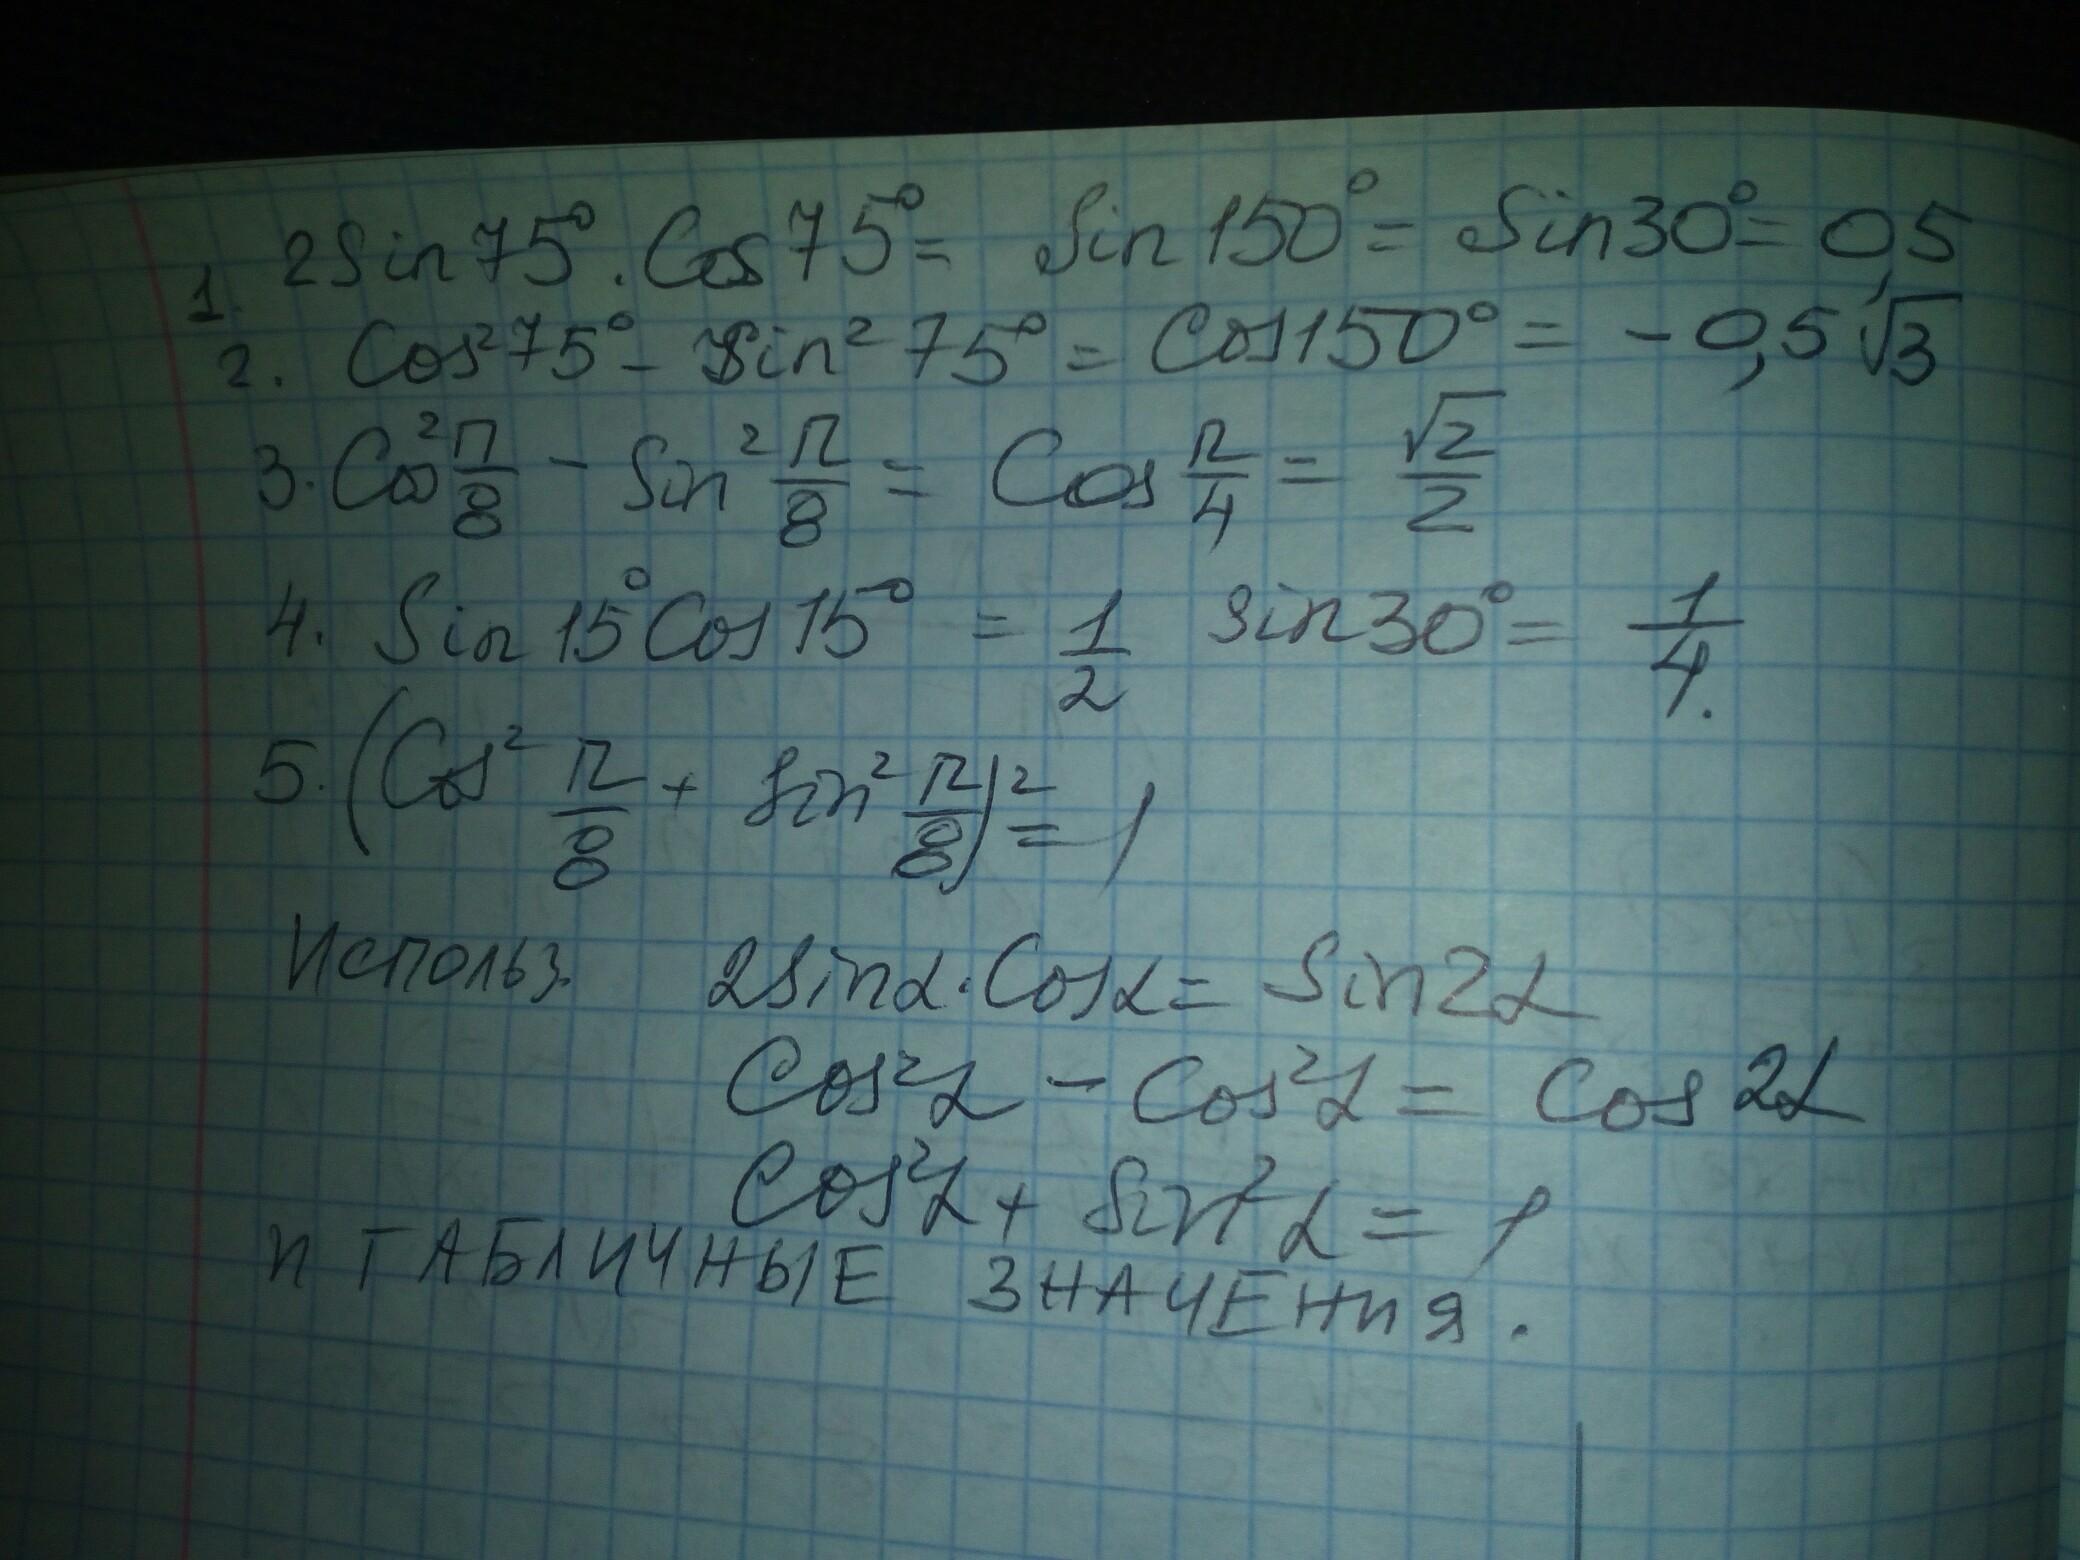 1. 2Sin75°·Cos75°= Sin150°= Sin30°= 0,5
2. Cos²75° - Sin²75° = Cos150° = -0,5√3
3. Cos² π/8 - Sin² π/8 = Cos π/4 = √2/2
4. Sin15°Cos15° = 1/2 sin30° = 1/4.
5. (Cos² π/8 + Sin² π/8)² = 1
Использ. 2Sinα·Cosα = Sin2α
Cos²α - Cos²α = Cos2α
Cos²α + Sin²α = 1
и ТАБЛИЧНЫЕ ЗНАЧЕНИЯ.